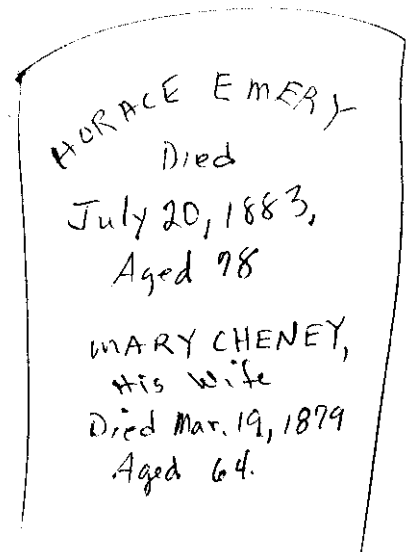 HORACE EMERY
Died
July 20, 1883,
Aged 78
MARY CHENEY,
His Wife
Died Mar. 19, 1879
Aged 64.